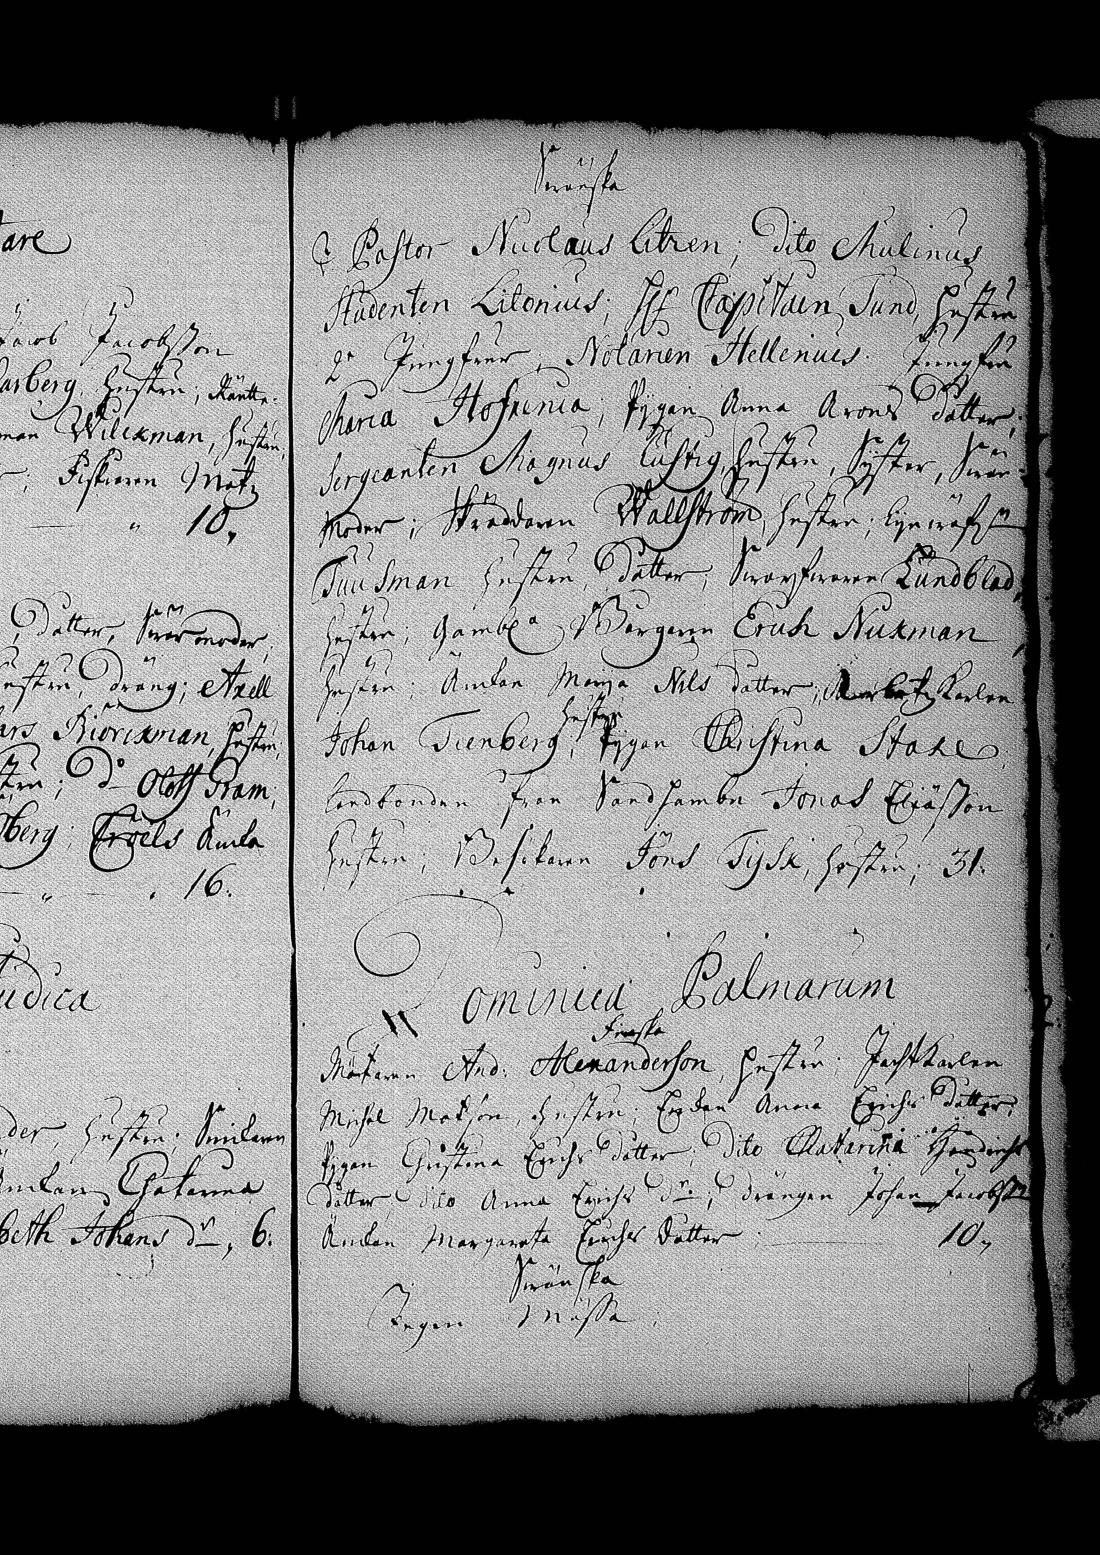 tare
Jacob Jacobsson
arberg, hustru; Räntte-
man Wilckman, hustru,
Fiskaren Matz
10,
Dotter, Swärmoder,
hustru, dräng; Axell
ars Kiörckman, hustru;
hustru; Do Oloff Gram;
berg; Troels Änka
16.
udica
der, hustru; Smeden
Änkan Chatarina
beth Johans dr, 6.
Swänska
Pastor Nicolaus Litzen; Dito Mulinus
Studenten Litonius; H: Capitain Sund, hustru
2e Jungfrur; Notarien Hellenius Jungfru
Maria Hofrenia; Pygan Anna Arons dotter;
Sergeanten Magnus Lustig, hustru, Syster, Swär-
moder; Skräddaren Wallström, hustru;
Tuusman hustru, Dotter; Swarfwaren Lundblad,
hustru; Gamble Borgaren Erich Nickman
hustru; Änkan Marja Nils dotter; Karlen
hustru
Johan Tienberg, Pygan Christina Stake,
Landbonden från Sandhambn Jonas
hustru; Besökaren Jöns Tysk, hustru; 31.
Dominica Palmarum
Finska
Mältaren And: Alexanderson, hustru; Jachtkarlen
Michel Matsson, hustru; Enckan Anna Erichs dotter;
Pygan Christina Erichs dotter; dito Chatarina Hendrichs
dotter, dito Anna Erichs dr; drängen Johan Jacobss
Änkan Margareta Erichs Dotter 10,
Swänska
Ingen Mässa.